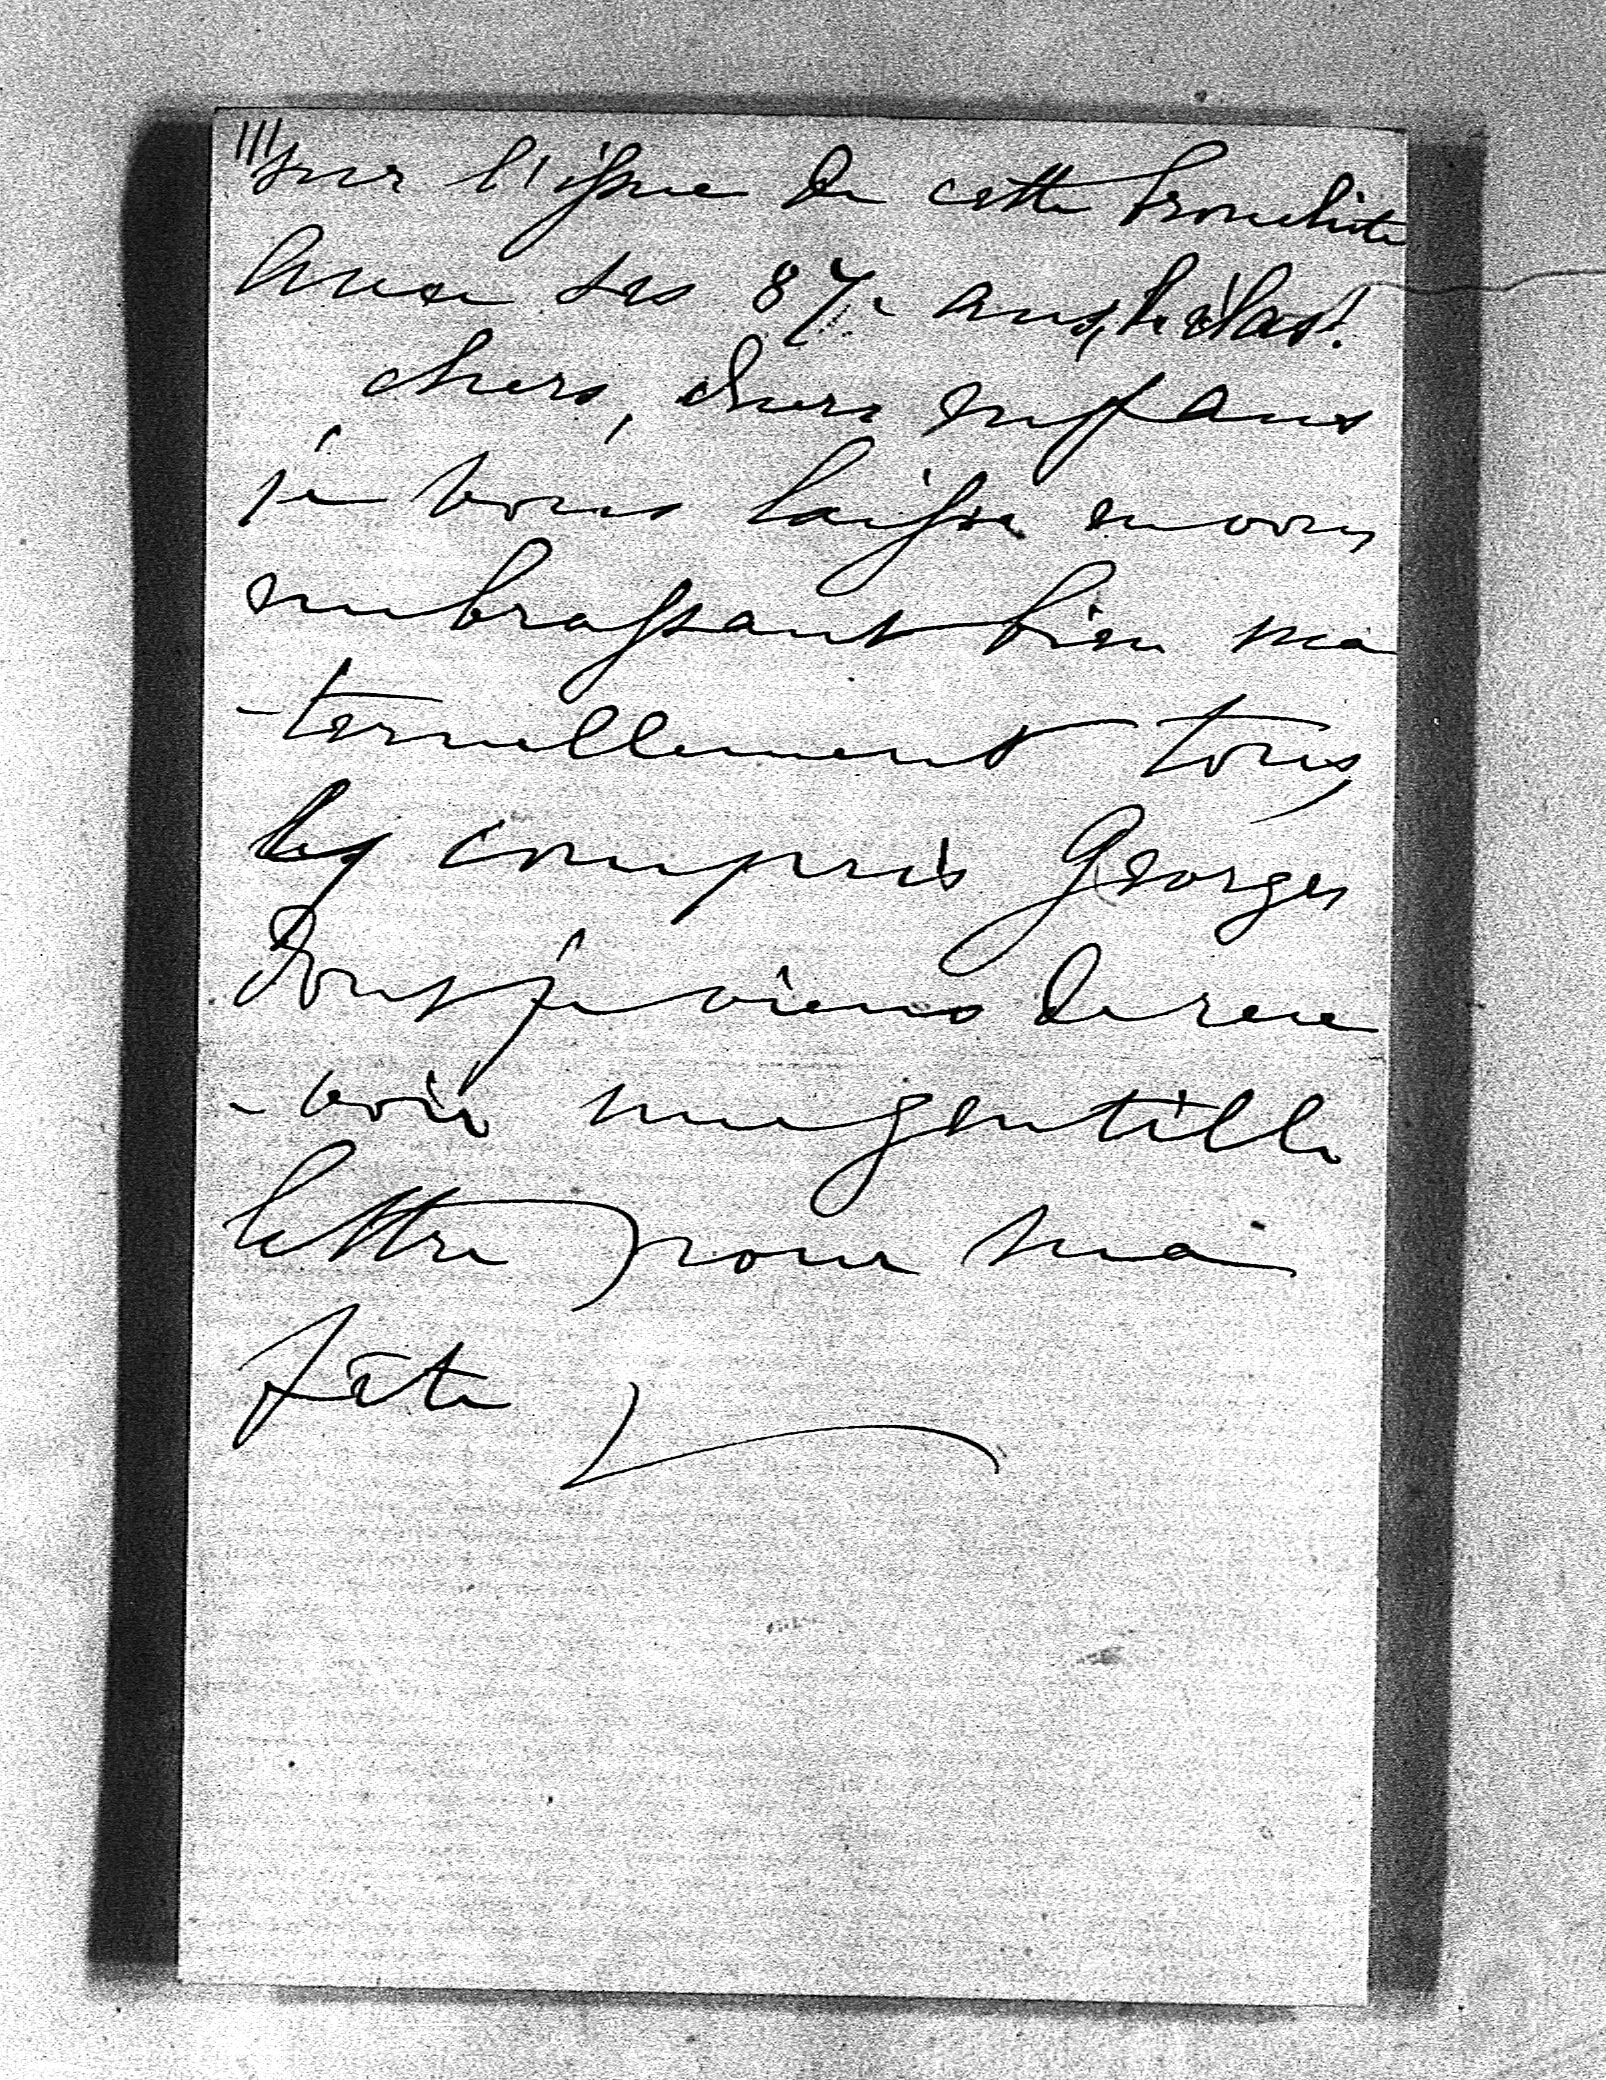 III
sur l'issue de cette bronchite
avec ses 87 ans, hélas!
chers, chers enfants
je vous laisse en vous
embrassant bien ma
-ternellement tous,
y compris Georges
dont je viens de rece
-voir une gentille
lettre pour ma
fête